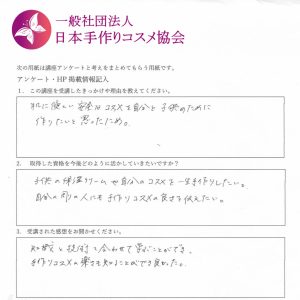 一般社団法人
日本手作りコスメ協会
次の用紙は講座アンケートと考えをまとめてもらう用紙です。
アンケート・HP 掲載情報記入
1. この講座を受講したきっかけや理由を教えてください。
肌に優しい安全なコスメを自分と子供のために
作りたいと思ったため。
2. 取得した資格を今後どのように活かしていきたいですか?
子供の保湿クリームや自分のコスメを一生手作りしたい。
自分の周りの人にも手作りコスメの良さを伝えたい。
3. 受講された感想をお聞かせください。
知識と技術を合わせて学ぶことができ、
手作りコスメの楽さを知ることができ良かった。